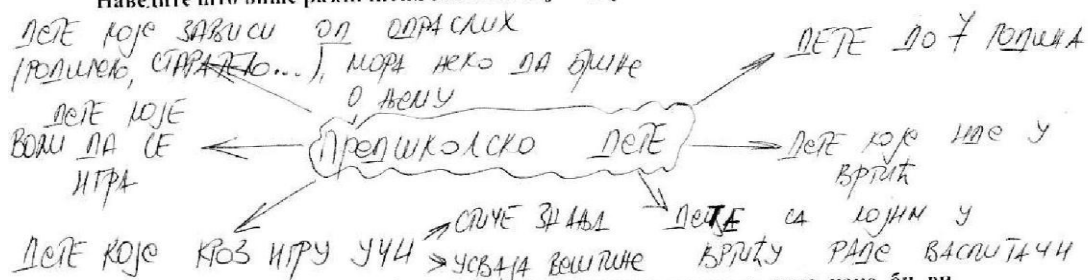 Наведите што више различитих
ДЕТЕ КОЈЕ ЗАВИСИ ОД ОДРАСЛИХ
(РОДИТЕЉ, СТАРАТЕЉ...), МОРА НЕКО ДА БРИНЕ
О ЊЕМУ
ДЕТЕ ДО 7 ГОДИНА
ДЕТЕ КОЈЕ
ВОЛИ ДА СЕ
ИГРА
ПРЕДШКОЛСКО ДЕТЕ
ДЕТЕ КОЈЕ ИДЕ У
ВРТИЋ
ДЕТЕ КОЈЕ КРОЗ ИГРУ УЧИ
СТИЧЕ ЗНАЊА
УСВАЈА ВЕШТИНЕ
ДЕТЕ СА КОЈИМ У
ВРТИЋУ РАДЕ ВАСПИТАЧИ
би ви